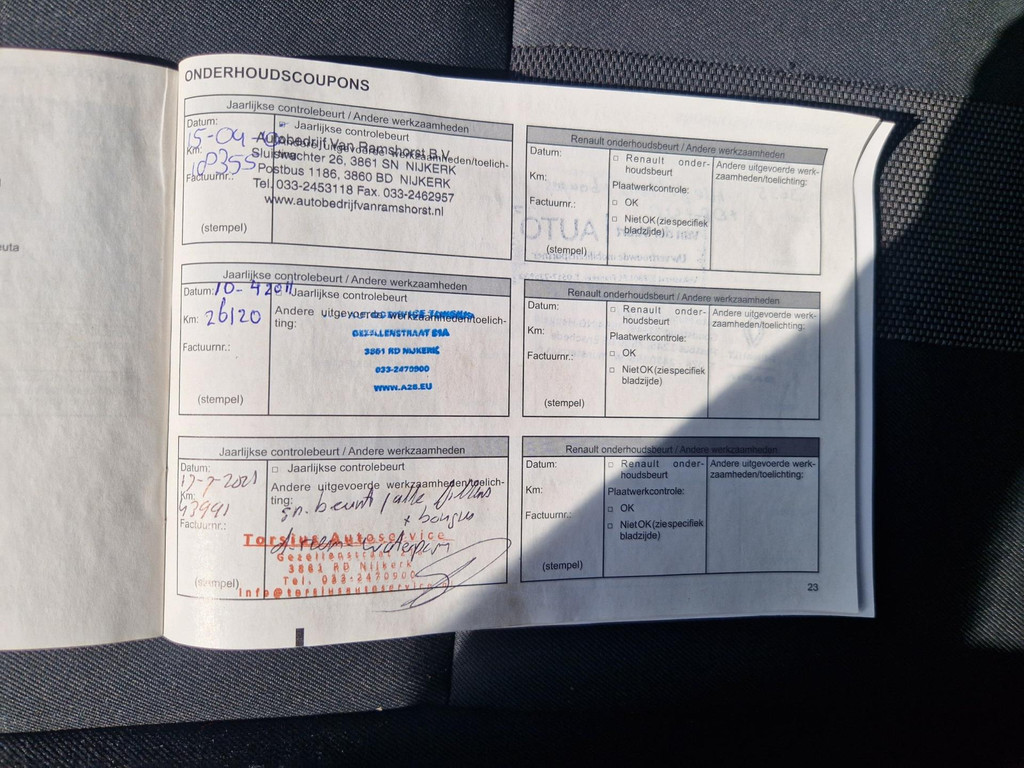 ONDERHOUDSCOUPONS
Jaarlijkse controlebeurt / Andere werkzaamheden
Datum:
15-04
Jaarlijkse controlebeurt
Autobedrijf Van Ramshorst B.V.
Km:
18355
Sluiswachter 26, 3861 SN NIJKERK
Postbus 1186, 3860 BD NIJKERK
Factuurnr.:
Tel. 033-2453118 Fax. 033-2462957
www.autobedrijfvanramshorst.nl
(stempel)
Jaarlijkse controlebeurt / Andere werkzaamheden
Datum: 10-4 2011 Jaarlijkse controlebeurt
Km: 26120
Andere uitgevoerde werkzaamheden/toelich-
ting:
GEZELLENSTRAAT 21A
3861 RD NIJKERK
Factuurnr.:
033-2470900
WWW.A2B.EU
(stempel)
Jaarlijkse controlebeurt / Andere werkzaamheden
Datum:
Jaarlijkse controlebeurt
17-7-2021
Andere uitgevoerde werkzaamheden/toelich-
ting:
Km:
43991
gr. beurt / alle filters
+ bougies
Factuurnr.:
Torsius Autoservice
Gezellenstraat
3861 RD Nijkerk
Tel. 033-2470900
(stempel)
Renault onderhoudsbeurt / Andere werkzaamheden
Datum:
Renault onder-
houdsbeurt
Andere uitgevoerde werk-
zaamheden/toelichting:
Km:
Plaatwerkcontrole:
OK
Factuurnr.:
Niet OK (zie specifiek
bladzijde)
(stempel)
Renault onderhoudsbeurt / Andere werkzaamheden
Datum:
Renault onder-
houdsbeurt
Andere uitgevoerde werk-
zaamheden/toelichting:
Km:
Plaatwerkcontrole:
OK
Factuurnr.:
Niet OK (zie specifiek
bladzijde)
(stempel)
Renault onderhoudsbeurt / Andere werkzaamheden
Datum:
Renault onder-
houdsbeurt
Andere uitgevoerde werk-
zaamheden/toelichting:
Km:
Plaatwerkcontrole:
OK
Factuurnr.:
Niet OK (zie specifiek
bladzijde)
(stempel)
23